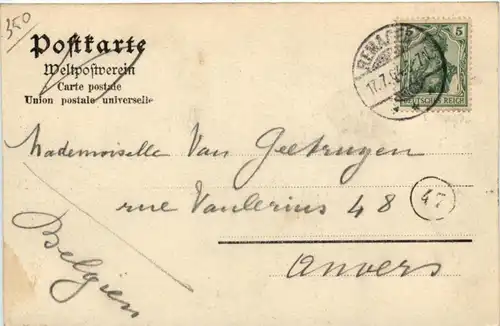 350
Postkarte
Weltpostverein
Carte postale
Union postale universelle
REMAGEN
17.7.0
5
DEUTSCHES REICH
Mademoiselle Van Geetruyen
rue Vanlerius 48
47
Anvers
Belgien